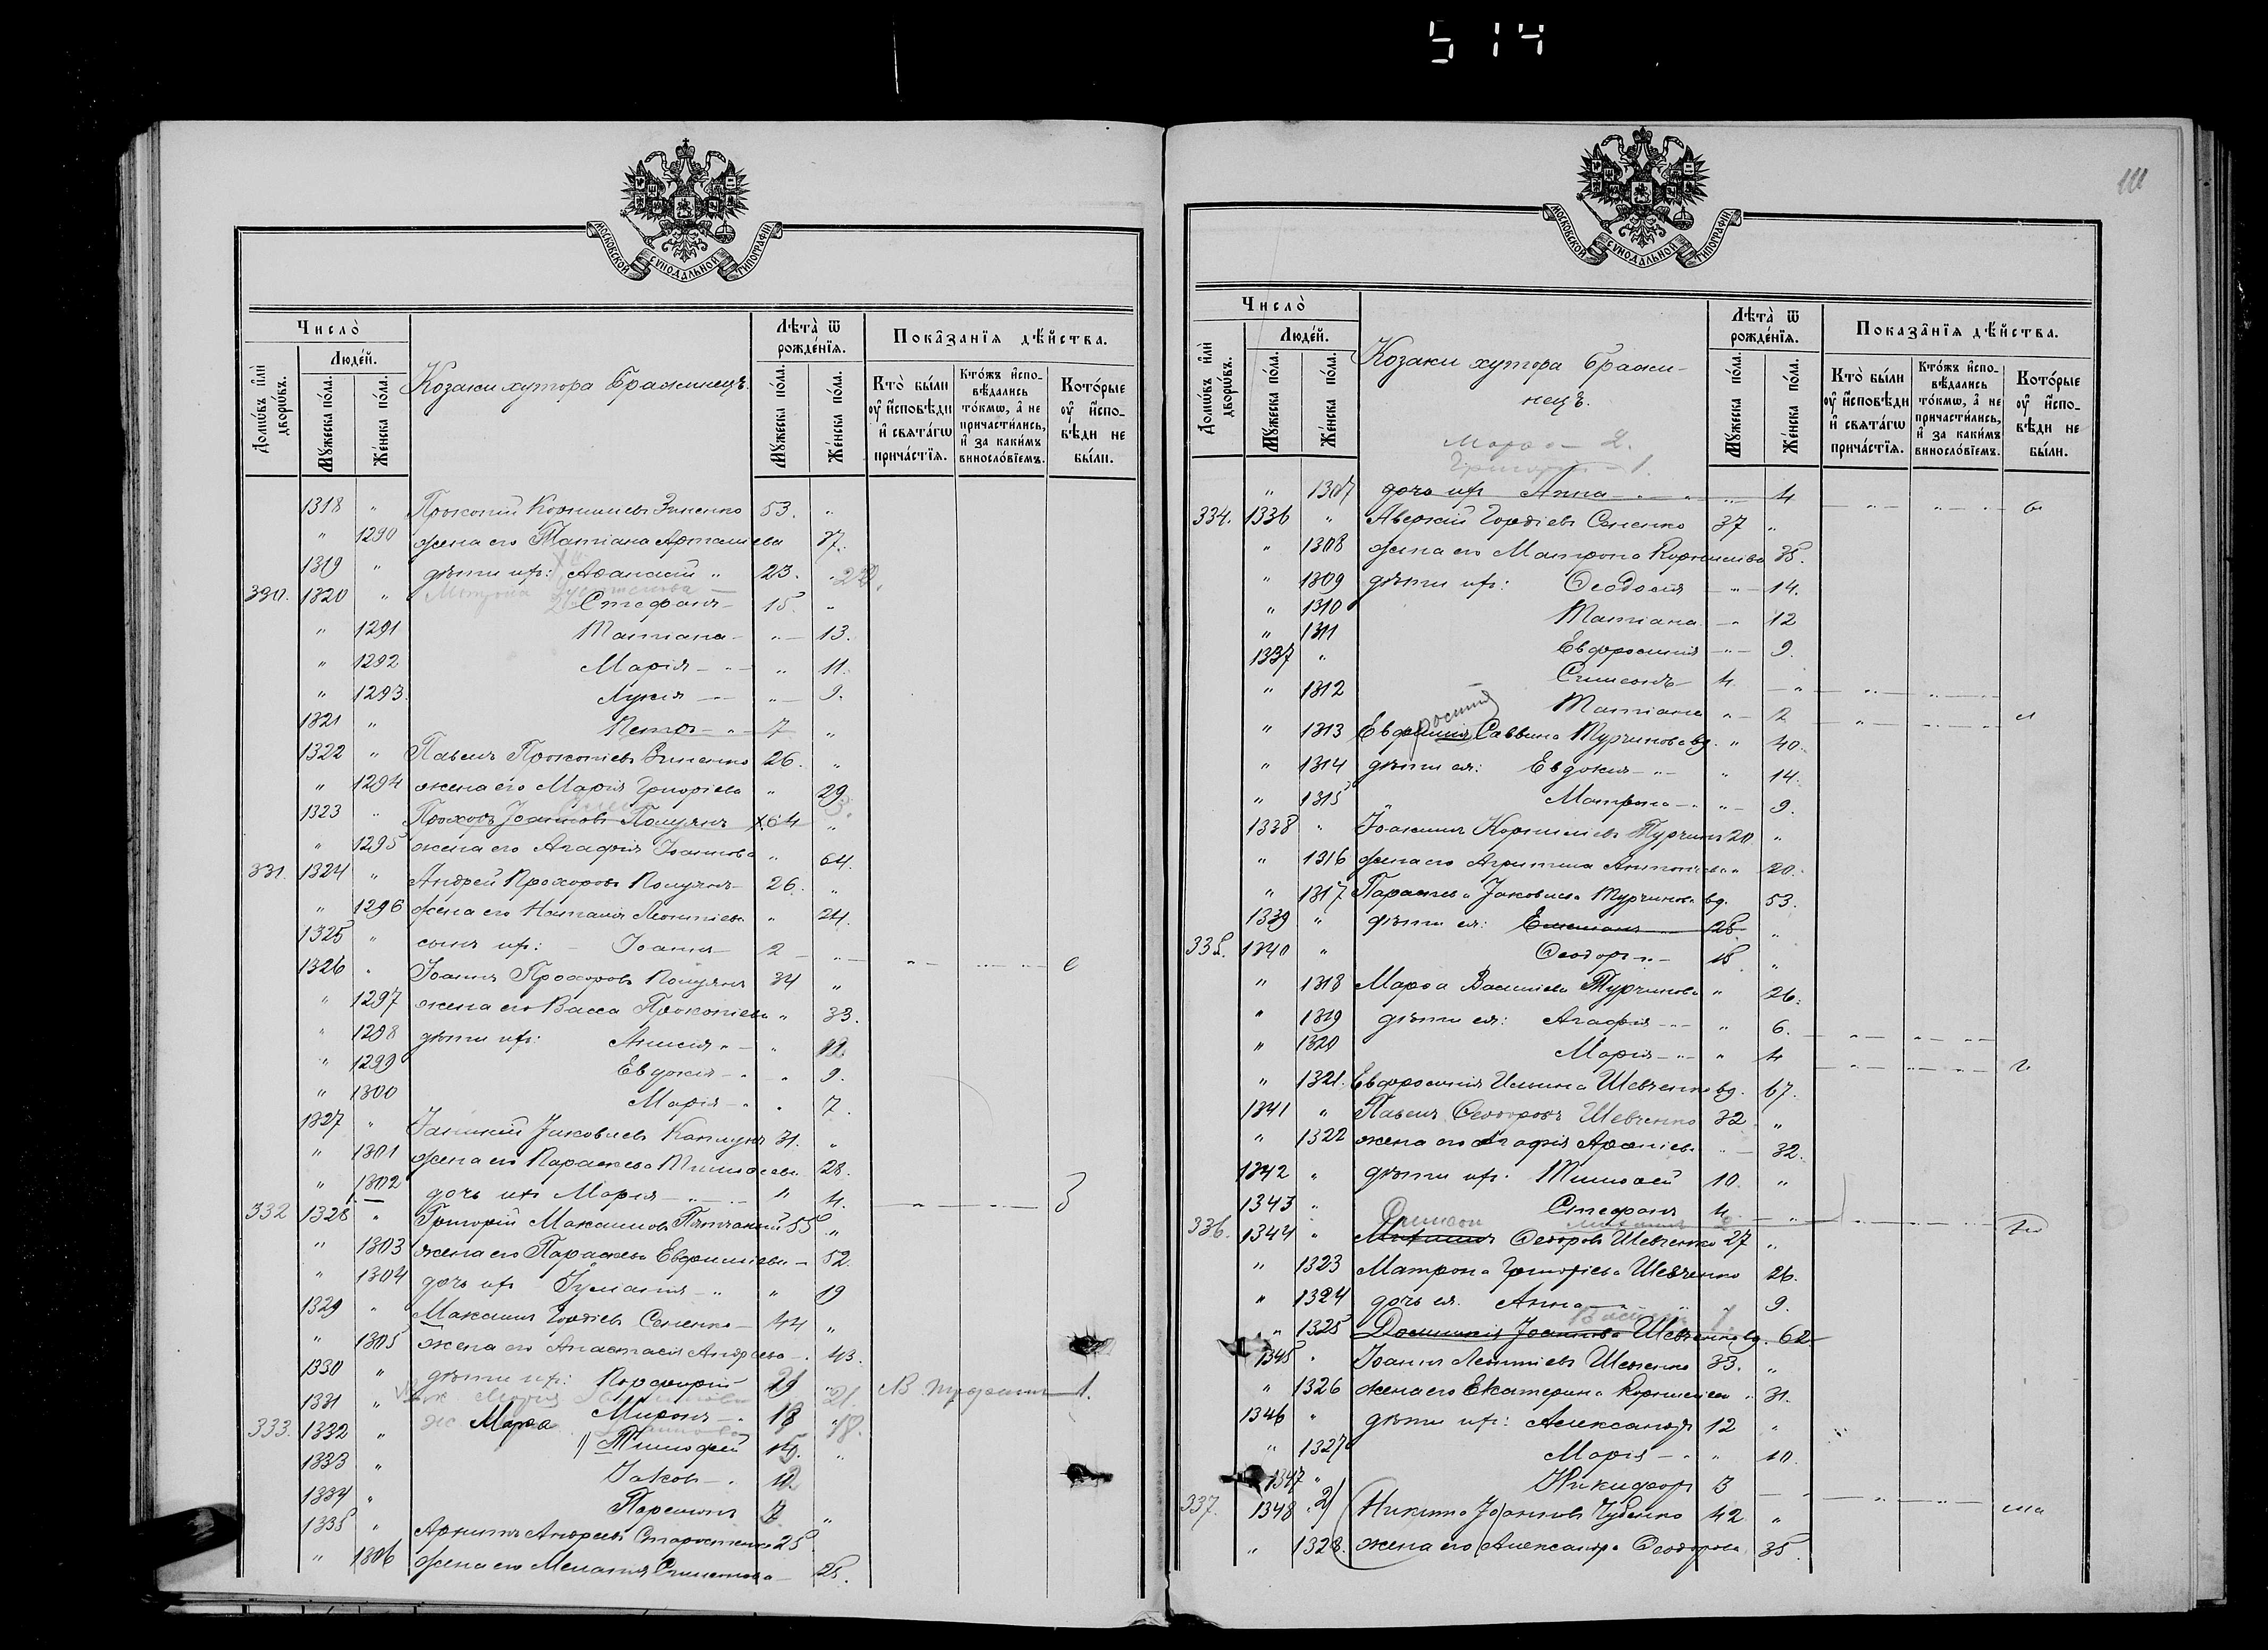 514
МОСКОВСКОЙ СѴНОДАЛЬНОЙ ТИПОГРАФІИ
Число̀
Лѣта̀ ѿ рожде́нїѧ.
Показа̑нїѧ дѣ́йства.
Домѡ́въ и҆лѝ дворѡ́въ.
Люде́й.
Мꙋ́жеска по́ла.
Же́нска по́ла.
Козаки хутора Бражинецъ.
Мꙋ́жеска по́ла.
Же́нска по́ла.
Кто̀ бы́ли ᲂу҆ и҆сповѣ́ди и҆ свѧта́гѡ прича́стїѧ.
Кто́жъ и҆спо-вѣ́дались то́кмѡ, а҆ не причасти́лись, и҆ за каки́мъ винослові́емъ.
Кото́рые ᲂу҆ и҆спо-вѣ́ди не бы́ли.
1318 " Прокопій Корниліевъ Зиненко 53. "
" 1290 жена его Татіана 57.
1319 " дѣти ихъ: Аѳанасій " 23. " 22.
330. 1320 " Стефанъ 15. "
" 1291 Татіана " 13.
" 1292 Марія " 11.
" 1293. Лукія " 9.
1321 " Петръ 7 "
1322 " Павелъ Прокопіевъ Зиненко 26. "
" 1294 жена его Марія Григоріева " 29.
1323 " Прохоръ Іоанновъ Полуянъ 64 "
" 1295 жена его Агафія Іоаннова " 64.
331. 1324 " Андрей Прохоровъ Полуянъ 26. "
" 1296 жена его Наталія Леонтіева " 24.
1325 " сынъ ихъ: Іоаннъ 2 "
1326 " Іоаннъ Прохоровъ Полуянъ 34 "
" 1297 жена его Васса Прокопіева " 33.
" 1298 дѣти ихъ: Анисія " 11.
" 1299 Евдокія " 9.
" 1300 Марія " 7.
1327 " Іаковлевъ 31. "
" 1301 жена его Параскева Тимоѳеева 28.
" 1302 дочь ихъ Марія " 4.
332 1328 " Григорій Максимовъ 55 "
" 1303 жена его Параскева Евфиміева 52.
" 1304 дочь ихъ Іуліанія " 19
1329 " Максимъ Гордіевъ Саненко 44 "
" 1305 жена его Анастасія Андреева 43.
1330 " дѣти ихъ: Порфирій 21 "
1331 " Миронъ 18 " 18.
333. 1332 " Марѳа Тимоѳей 15. "
1333 " Іаковъ 12
1334 " 7. "
1335 " Архипъ Андреевъ 25
" 1306 жена его Меланія Симеонова 25.
111
МОСКОВСКОЙ СѴНОДАЛЬНОЙ ТИПОГРАФІИ
Число̀
Лѣта̀ ѿ рожде́нїѧ.
Показа̑нїѧ дѣ́йства.
Домѡ́въ и҆лѝ дворѡ́въ.
Люде́й.
Мꙋ́жеска по́ла.
Же́нска по́ла.
Козаки хутора Бражи-
нецъ.
Мꙋ́жеска по́ла.
Же́нска по́ла.
Кто̀ бы́ли ᲂу҆ и҆сповѣ́ди и҆ свѧта́гѡ прича́стїѧ.
Кто́жъ и҆спо-вѣ́дались то́кмѡ, а҆ не причасти́лись, и҆ за каки́мъ винослові́емъ.
Кото́рые ᲂу҆ и҆спо-вѣ́ди не бы́ли.
Марѳа – 2.
Григорій – 1.
" 1307 дочь ихъ Анна " 4
334. 1336 " Аверкій Гордіевъ Саненко 37 "
" 1308 жена его Матрона Корниліева 35.
" 1309 дѣти ихъ: Ѳеодосія " 14.
" 1310 Татіана " 12
" 1311 Евфросинія " 9.
1337 " Симеонъ 4 "
" 1312 Татіана " 2
" 1313 Евфросинія Саввина Турчинова вд. " 40.
" 1314 дѣти ея: Евдокія " 14.
" 1315 Матрона " 9.
1338 " Іоакимъ Корниліевъ Турчинъ 20 "
" 1316 жена его Агрипина Антоніева " 20.
" 1317 Параскева Іаковлева Турчинова вд. 53.
1339 " дѣти ея: 28. "
335. 1340 " Ѳеодоръ 15 "
" 1318 Марѳа Василіева Турчинова " 26.
" 1319 дѣти ея: Агафія " 6.
" 1320 Марія " 4
" 1321. Евфросинія Шевченко вд. 67.
1341 " Павелъ Ѳеодоровъ Шевченко 32 "
" 1322 жена его Агафія " 32.
1342 " дѣти ихъ: Тимоѳей 10 "
1343 " Стефанъ 4 "
336. 1344 " Симеон Ѳеодоровъ Шевченко 27 "
" 1323 Матрона Григоріева Шевченко 26.
" 1324 дочь ея. Анна " 9.
" 1325 Домникія Іоаннова Шевченко вд. 62
1345 " Іоаннъ Леонтіевъ Шевченко 33. "
" 1326 жена его Екатерина Корниліева " 31.
1346 " дѣти ихъ: Александръ 12 "
" 1327 Марія " 10.
1347 " Никифоръ 3
337. 1348 " Никита Іоанновъ 42 "
" 1328. жена его Александра Ѳеодорова 35.